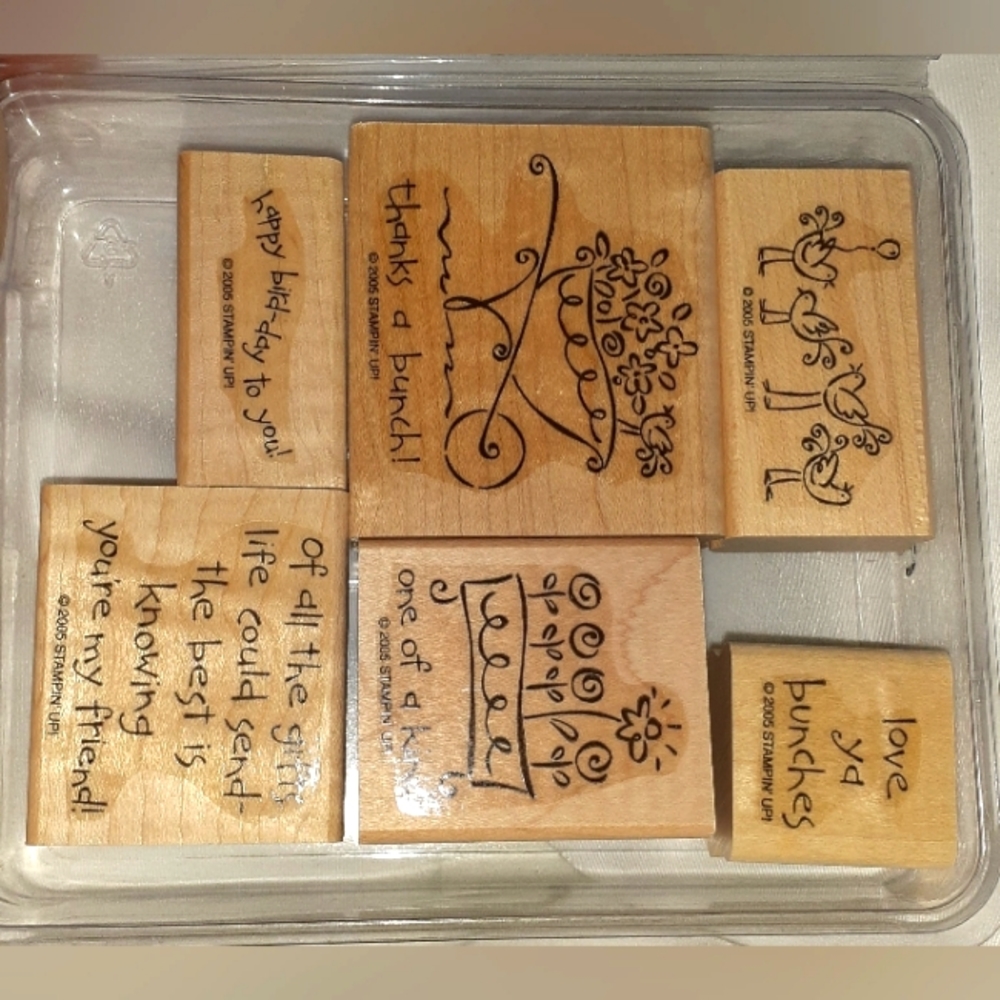 happy bird-day to you!
© 2005 STAMPIN' UP!
thanks a bunch!
© 2005 STAMPIN' UP!
© 2005 STAMPIN' UP!
of all the gifts
life could send-
the best is
knowing
you're my friend!
© 2005 STAMPIN' UP!
one of a
© 2005 STAMPIN' UP!
love
ya
bunches
© 2005 STAMPIN' UP!